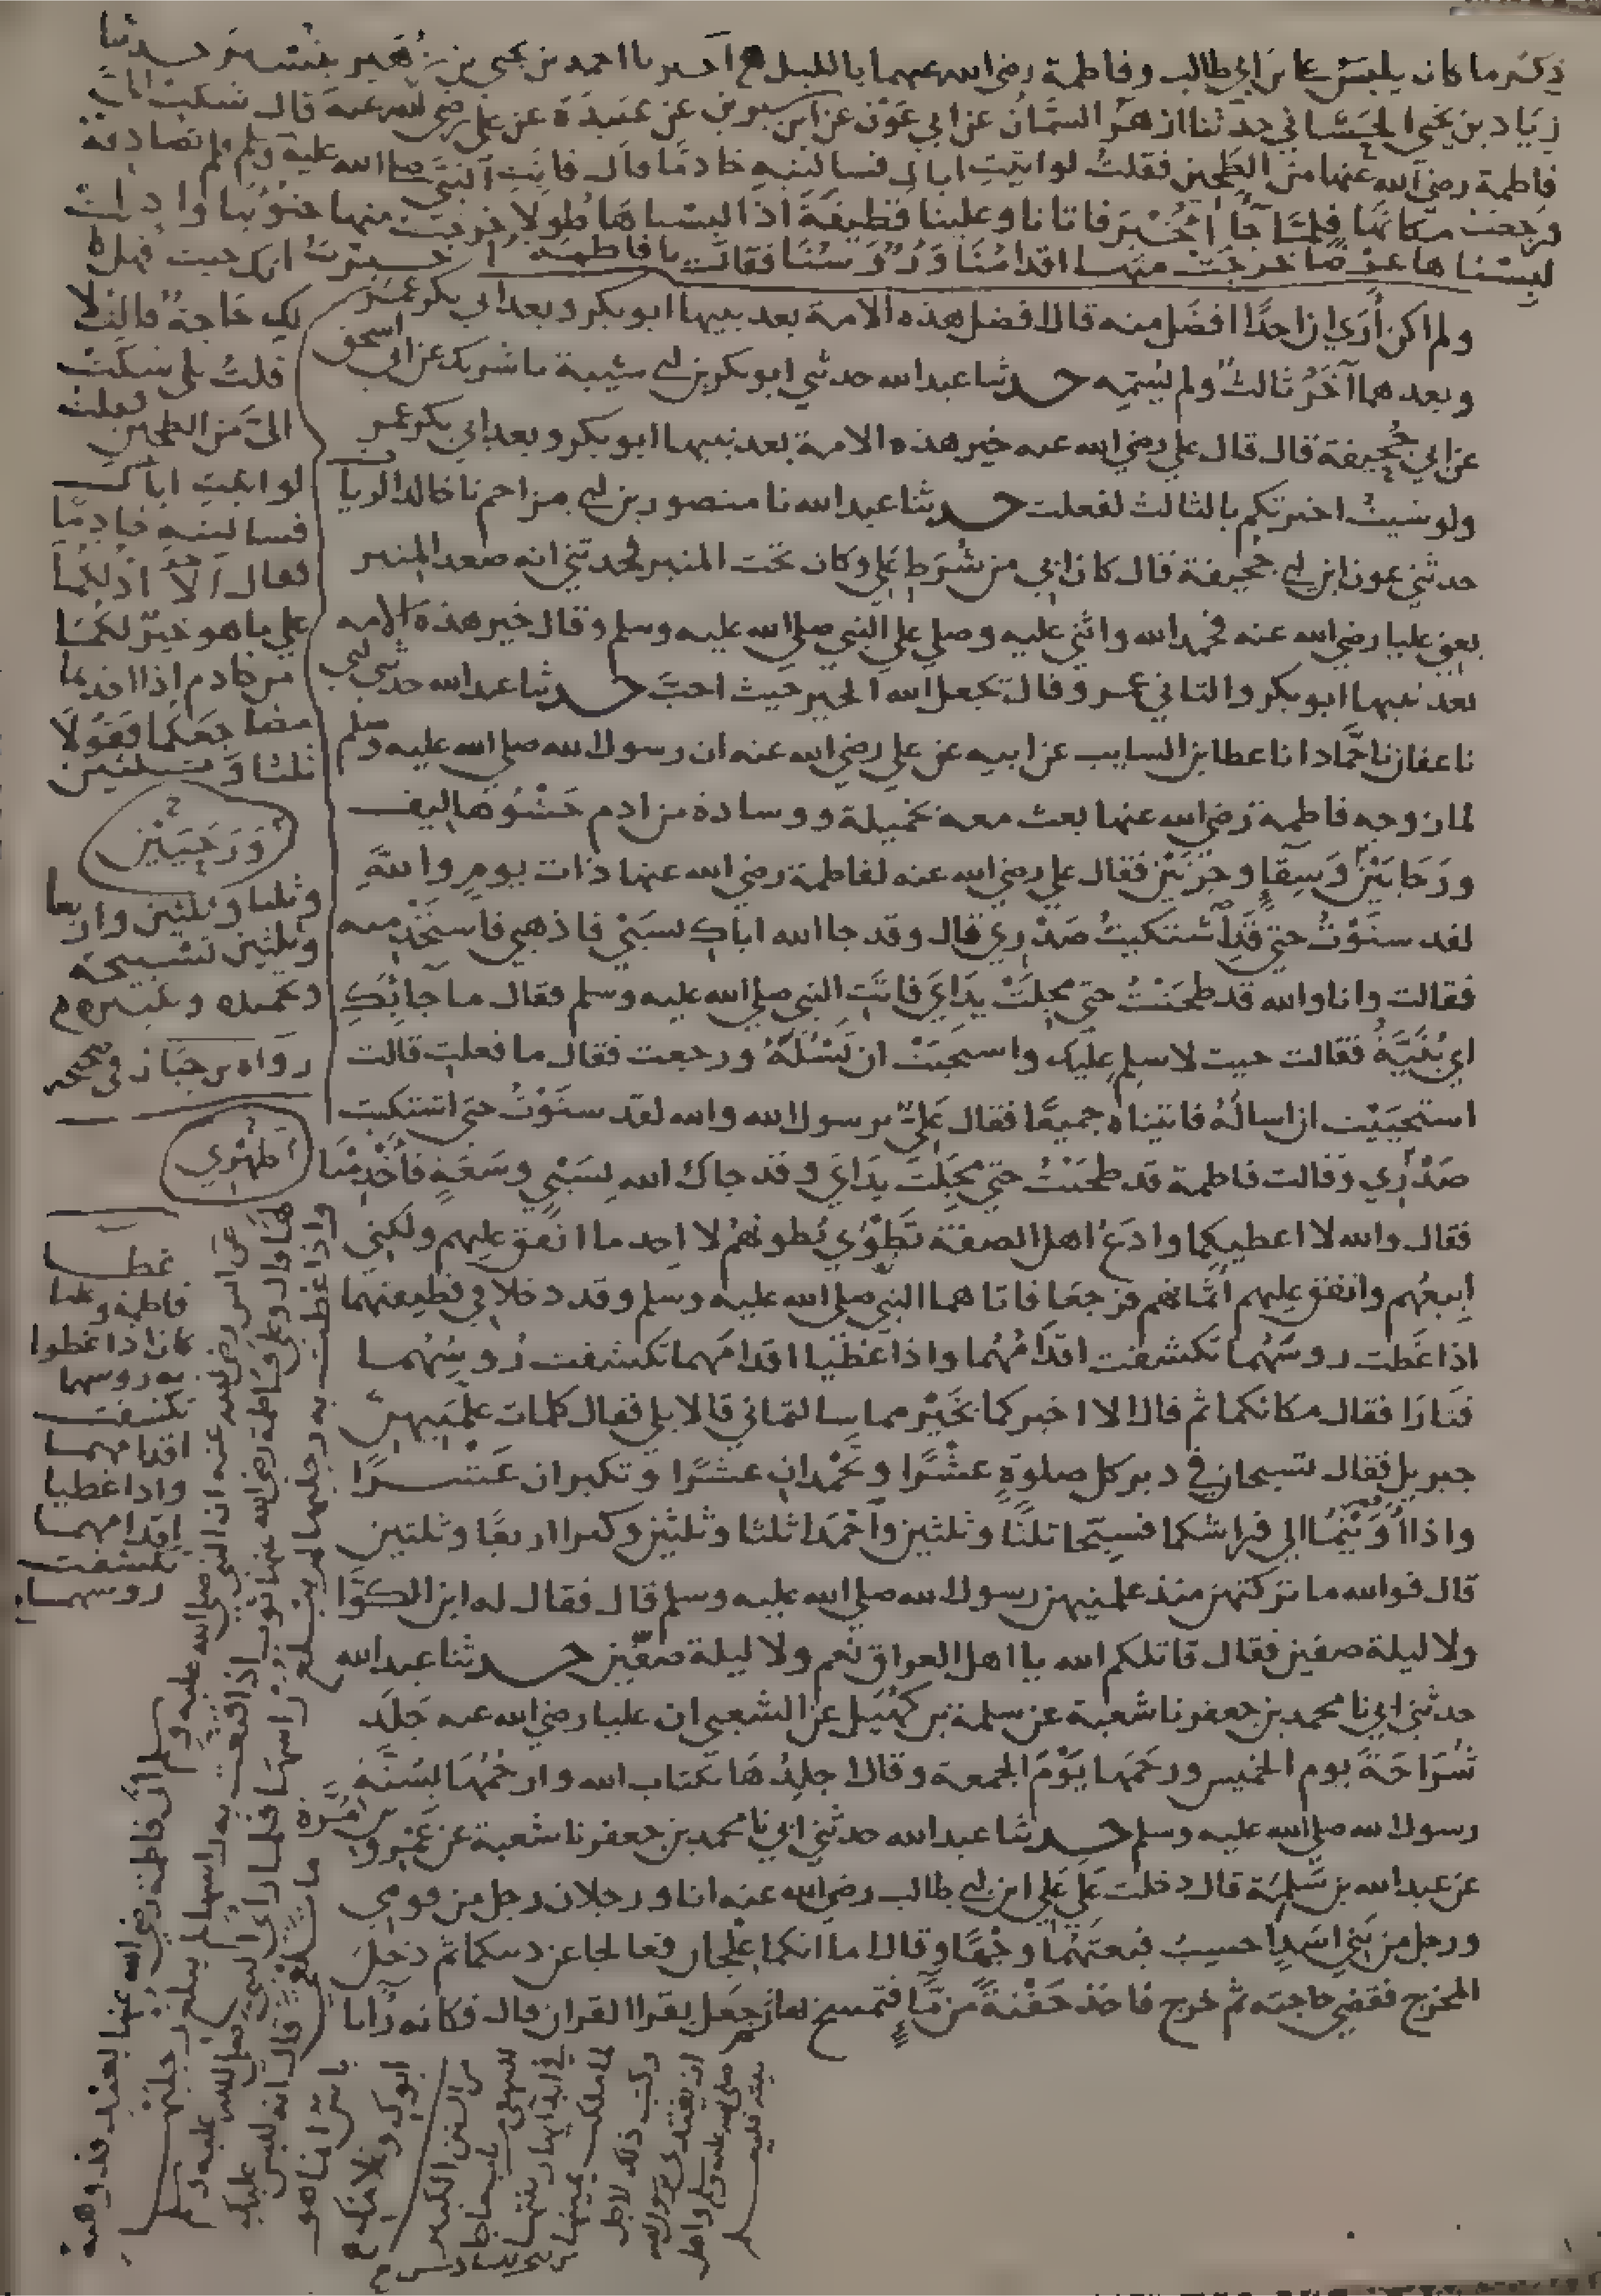 ذكر ما كان يلبس علي بن ابي طالب وفاطمة رضي الله عنهما بالليل اخبرنا احمد بن يحيى بن زهير بتستر حدثنا
زياد بن يحيى الحساني حدثنا ازهر السمان عن ابن عون عن ابن سيرين عن عبيدة عن علي رضي الله عنه قال شكت الي
فاطمة رضي الله عنها من الطحين فقلت لو اتيت اباك فسالتيه خادما قال فاتت النبي صلى الله عليه وسلم فلم تصادفه
فرجعت مكانها فلما جا اخبر فاتانا وعلينا قطيفة اذا لبسناها طولا خرجت منها جنوبنا واذا
لبسناها عرضا خرجت منها اقدامنا ورووسنا فقال يا فاطمة اخبرت انك جيت فهل
لك حاجة قالت لا
قلت بلى شكت
الي من الطحين فقلت
لو اتيت اباك
فسالتيه خادما
فقال الا ادلكما
على ما هو خير لكما
من خادم اذا اخذتما
مضاجعكما فقولا
ثلثا وثلثين
وثلثا وثلثين واربعا
وثلثين تسبيحة
وتحميدة وتكبيرة
رواه بن حبان في صحيحه
ولم اكن أرى ان احدا افضل منه قال افضل هذه الامة بعد نبيها ابو بكر وبعد ابي بكر عمر
وبعدهما آخر ثالث ولم يسمه حدثنا عبد الله حدثني ابو بكر بن ابي شيبة نا شريك عن ابي اسحق
عن ابي جحيفة قال قال علي رضي الله عنه خير هذه الامة بعد نبيها ابو بكر وبعد ابي بكر عمر
ولو شيت اخبرتكم بالثالث لفعلت حدثنا عبد الله نا منصور بن ابي مزاحم نا خالد الزيا
حدثني عون ابن ابي جحيفة قال كان ابي من شرط علي وكان تحت المنبر فحدثني انه صعد المنبر
يعني عليا رضي الله عنه فحمد الله واثنى عليه وصلى على النبي صلى الله عليه وسلم وقال خير هذه الامه
بعد نبيها ابو بكر والثاني عمر وقال يجعل الله الخير حيث احب حدثنا عبد الله حدثني ابي
نا عفان نا حماد انا عطا بن السايب عن ابيه عن علي رضي الله عنه ان رسول الله صلى الله عليه وسلم
لما زوجه فاطمة رضي الله عنها بعث معه بخميلة ووسادة من ادم حشوها ليف
ورحايين وسقا وجرتين فقال علي رضي الله عنه لفاطمة رضي الله عنها ذات يوم والله
لقد سنوت حتى قد اشتكيت صدري قال وقد جا الله اباك بسبي فاذهبي فاستخدميه
فقالت وانا والله قد طحنت حتى مجلت يداي فاتت النبي صلى الله عليه وسلم فقال ما جا بك
اي بنية فقالت جيت لاسلم عليك واستحيت ان تسئله ورجعت فقال ما فعلت قالت
استحييت ان اساله فاتيناه جميعا فقال علي يرسول الله والله لقد سنوت حتى اشتكيت
صدري وقالت فاطمة قد طحنت حتى مجلت يداي وقد جاك الله بسبي وسعة فأخدمنا
فقال والله لا اعطيكما وادع اهل الصفة تطوي بطونهم لا اجد ما انفق عليهم ولكني
ابيعهم وانفق عليهم اثمانهم فرجعا فاتاهما النبي صلى الله عليه وسلم وقد دخلا في قطيفتهما
اذا غطت روسهما تكشفت اقدامهما واذا غطيا اقدامهما تكشفت روسهما
فثارا فقال مكانكما ثم قال الا اخبركما بخير مما سالتماني قالا بلى فقال كلمات علمنيهن
جبريل فقال تسبحان في دبر كل صلوة عشرا وتحمدان عشرا وتكبران عشرا
واذا أويتما الى فراشكما فسبحا ثلثا وثلثين وأحمدا ثلثا وثلثين وكبرا اربعا وثلثين
قال فوالله ما تركتهن منذ علمنيهن رسول الله صلى الله عليه وسلم قال فقال له ابن الكوا
ولا ليلة صفين فقال قاتلكم الله يا اهل العراق نعم ولا ليلة صفين حدثنا عبد الله
حدثني ابي نا محمد بن جعفر نا شعبة عن سلمة بن كهيل عن الشعبي ان عليا رضي الله عنه جلد
شراحة يوم الخميس ورجمها يوم الجمعة وقال اجلدها بكتاب الله وارجمها بسنة
رسول الله صلى الله عليه وسلم حدثنا عبد الله حدثني ابي نا محمد بن جعفر نا شعبة عن عمرو بن مرة
عن عبد الله بن سلمة قال دخلت على علي ابن ابي طالب رضي الله عنه انا ورجلان رجل من قومي
ورجل من بني اسد احسب فبعثهما وجها وقال اما انكما علجان فعالجا عن دينكما ثم دخل
المخرج فقضى حاجته ثم خرج فاخذ حفنة من ما فتمسح بها ثم جعل يقرا القران قال فكانه رانا
ورحيين
تطوي
غطت
فاطمة وعليا
كانا اذا غطوا
به روسهما
تكشفت
اقدامهما
واذا غطيا
اقدامهما
تكشفت
روسهما
عن انس رضي الله عنه ان النبي صلى الله عليه وسلم اتى فاطمة رضي الله عنها بعبد قد وهبه
لها قال وعلى فاطمة رضي الله عنها ثوب اذا قنعت به راسها لم يبلغ رجليها
واذا غطت به رجليها لم يبلغ راسها فلما راى النبي صلى الله عليه وسلم
ما تلقى قال انه ليس عليك
باس انما هو
ابوك وغلامك